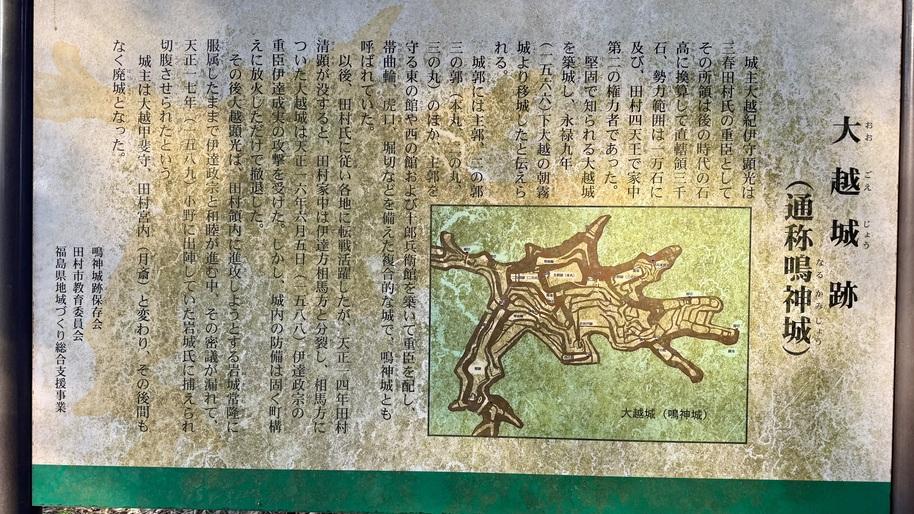 大越城跡
おお ごえ じょう
（通称鳴神城）
なる かみ じょう
城主大越紀伊守顕光は
三春田村氏の重臣として
その所領は後の時代の石
高に換算して直轄領三千
石、勢力範囲は一万石に
及び、田村四天王で家中
第二の権力者であった。
堅固で知られる大越城
を築城し、永禄九年
（一五六六）下大越の朝霧
城より移城したと伝えら
れる。
城郭には主郭、二の郭
三の郭（本丸、二の丸、
三の丸）のほか、主郭を
守る東の館や西の館および十郎兵衛館を築いて重臣を配し、
帯曲輪、虎口、堀切などを備えた複合的な城で、鳴神城とも
呼ばれていた。
以後、田村氏に従い各地に転戦活躍したが、天正一四年田村
清顕が没すると、田村家中は伊達方相馬方と分裂し、相馬方に
ついた大越城は天正一六年六月五日（一五八八）伊達政宗の
重臣伊達成実の攻撃を受けた。しかし、城内の防備は固く町構
えに放火しただけで撤退した。
その後大越顕光は、田村領内に進攻しようとする岩城常隆に
服属したままで伊達政宗と和睦が進む中、その密議が漏れて、
天正一七年（一五八九）小野に出陣していた岩城氏に捕えられ
切腹させられたという。
城主は大越甲斐守、田村宮内（月斎）と変わり、その後間も
なく廃城となった。
鳴神城跡保存会
田村市教育委員会
福島県地域づくり総合支援事業
大越城（鳴神城）